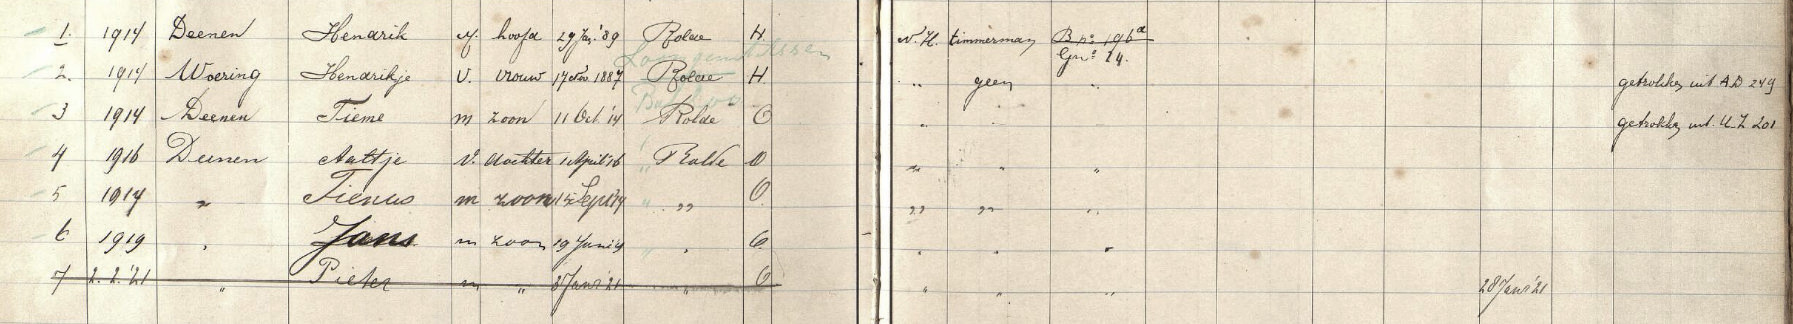 1. 1914 Deenen Hendrik M. hoofd 29 Jan. '89 Rolde H N.H. timmerman B no 196a
Gn o 14.
2. 1914 Woering Hendrikje V. vrouw 17 Nov. 1887 Rolde H „ geen „ getrokken uit A.D 249
3 1914 Deenen Tieme m zoon 11 Oct '14 Rolde O „ getrokken uit U.Z 201
4 1916 Deenen Aaltje V. dochter 1 April '16 Rolde O „ „ „
5 1917 „ Tienus m zoon Sept „ O „ „ „
6 1919 „ Jans m zoon 19 Juni „ O „ „ „
7 2.2.'21 „ Pieter m „ Janr '21 „ O „ „ „ 28 Janr '21